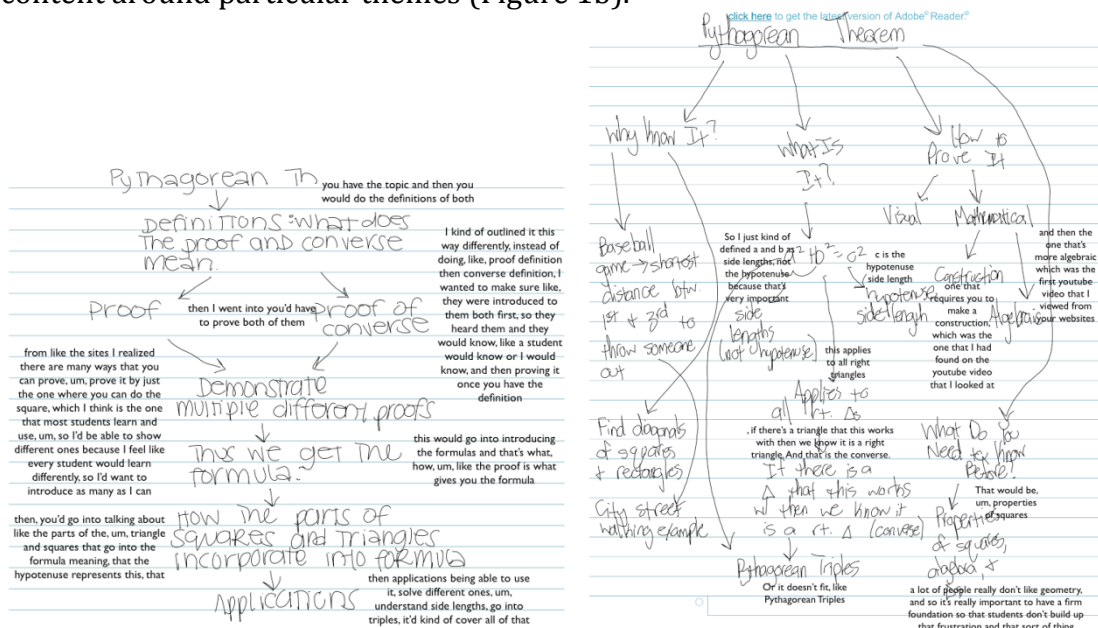 content around particular themes (Figure 1b).
Pythagorean Th
you have the topic and then you
would do the definitions of both
Definitions: what does
The proof and converse
mean.
I kind of outlined it this
way differently, instead of
doing, like, proof definition
then converse definition, I
wanted to make sure like,
they were introduced to
them both first, so they
heard them and they
would know, like a student
would know or I would
know, and then proving it
once you have the
definition
Proof
then I went into you'd have
to prove both of them
proof of
converse
from like the sites I realized
there are many ways that you
can prove, um, prove it by just
the one where you can do the
square, which I think is the one
that most students learn and
use, um, so I'd be able to show
different ones because I feel like
every student would learn
differently, so I'd want to
introduce as many as I can
Demonstrate
multiple different proofs
Thus we get The
formula.
this would go into introducing
the formulas and that's what,
how, um, like the proof is what
gives you the formula
then, you'd go into talking about
like the parts of the, um, triangle
and squares that go into the
formula meaning, that the
hypotenuse represents this, that
How The parts of
squares and Triangles
incorporate into formula
Applications
then applications being able to use
it, solve different ones, um,
understand side lengths, go into
triples, it'd kind of cover all of that
click here to get the latest version of Adobe® Reader®
Pythagorean Theorem
Why Know It?
What Is
It?
How to
Prove It
Visual
Mathmatical
Baseball
game → shortest
distance btw.
1st + 3rd to
throw someone
out
So I just kind of
defined a and b as
side lengths, not
the hypotenuse
because that's
very important
a² + b² = c²
c is the
hypotenuse
side length
hypotenuse
side length
side
lengths
(not hypotenuse)
Construction
one that
requires you to
make a
construction,
which was the
one that I had
found on the
youtube video
that I looked at
Algebraic
and then the
one that's
more algebraic
which was the
first youtube
video that I
viewed from
your websites
this applies
to all right
triangles
Applies to
all rt. Δs
Find diagonals
of squares
+ rectangles
City street
walking example
if there's a triangle that this works
with then we know it is a right
triangle. And that is the converse.
If there is a
Δ that this works
w/ then we know it
is a rt. Δ (converse)
Pythagorean Triples
Or it doesn't fit, like
Pythagorean Triples
What Do You
Need to Know
Before?
That would be,
um, properties
of squares
Properties
of squares,
algebra, +
a lot of people really don't like geometry,
and so it's really important to have a firm
foundation so that students don't build up
that frustration and that sort of thing